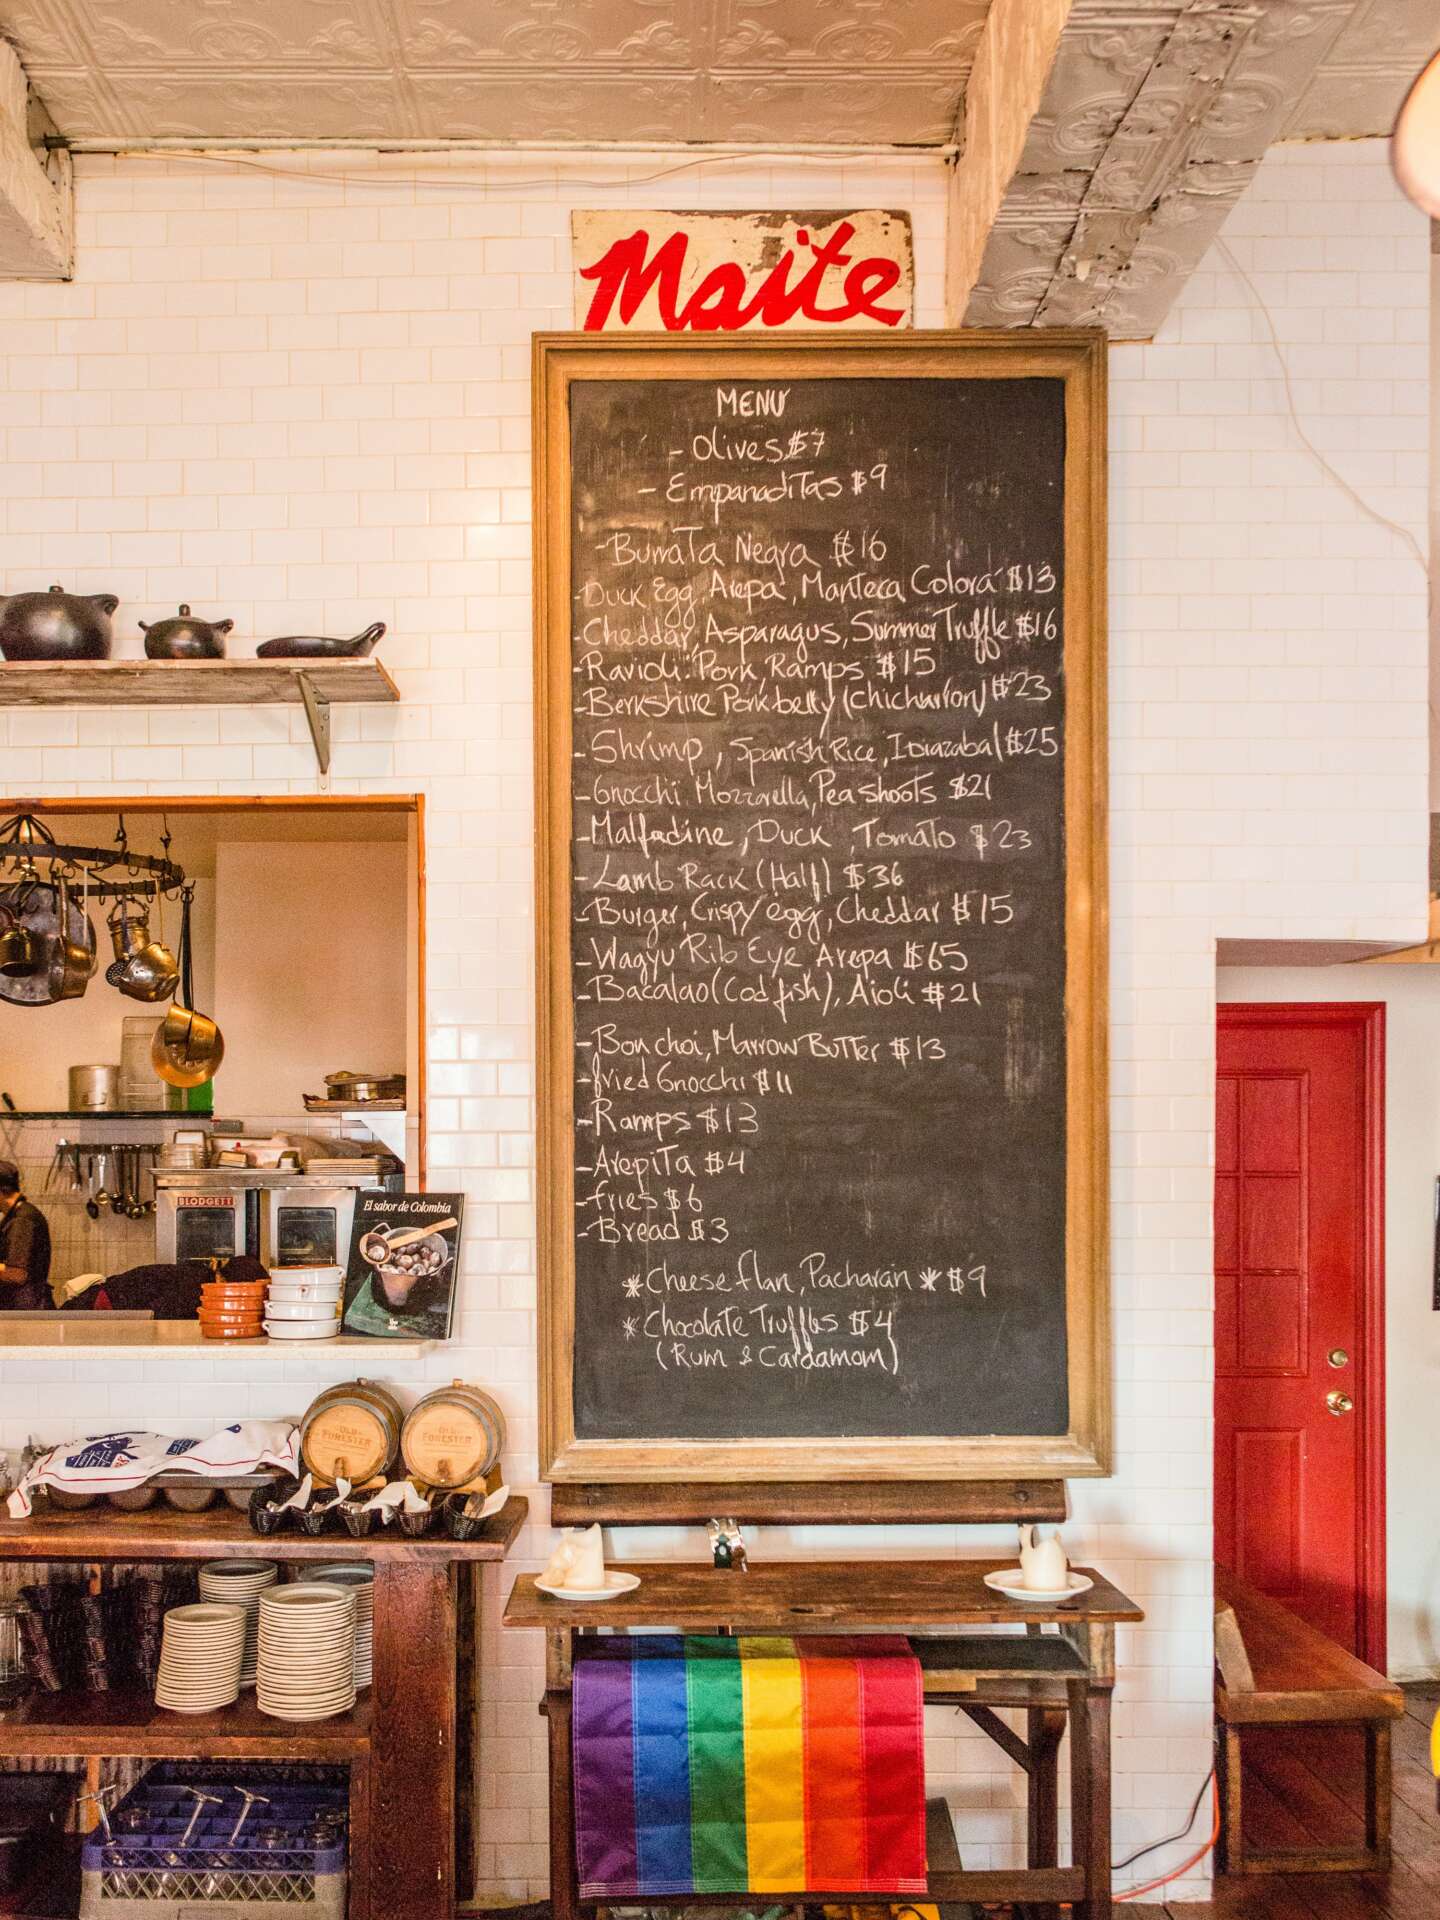 Maite
MENU
- Olives $7
- Empanaditas $9
- Burrata Negra $16
- Duck Egg, Arepa, Manteca Colorá $13
- Cheddar, Asparagus, Summer Truffle $16
- Ravioli: Pork, Ramps $15
- Berkshire Porkbelly (chicharron) $23
- Shrimp, Spanish Rice, Idiazabal $25
- Gnocchi Mozzarella, Pea shoots $21
- Malfadine, Duck, Tomato $23
- Lamb Rack (Half) $36
- Burger, Crispy egg, Cheddar $15
- Wagyu Rib Eye Arepa $65
- Bacalao (Cod fish), Aioli $21
- Bon choi, Marrow Butter $13
- fried Gnocchi $11
- Ramps $13
- Arepita $4
- fries $6
- Bread $3
* Cheese flan, Pacharán * $9
* Chocolate Truffles $4
(Rum & Cardamom)
BLODGETT
El sabor de Colombia
OLD FORESTER
OLD FORESTER